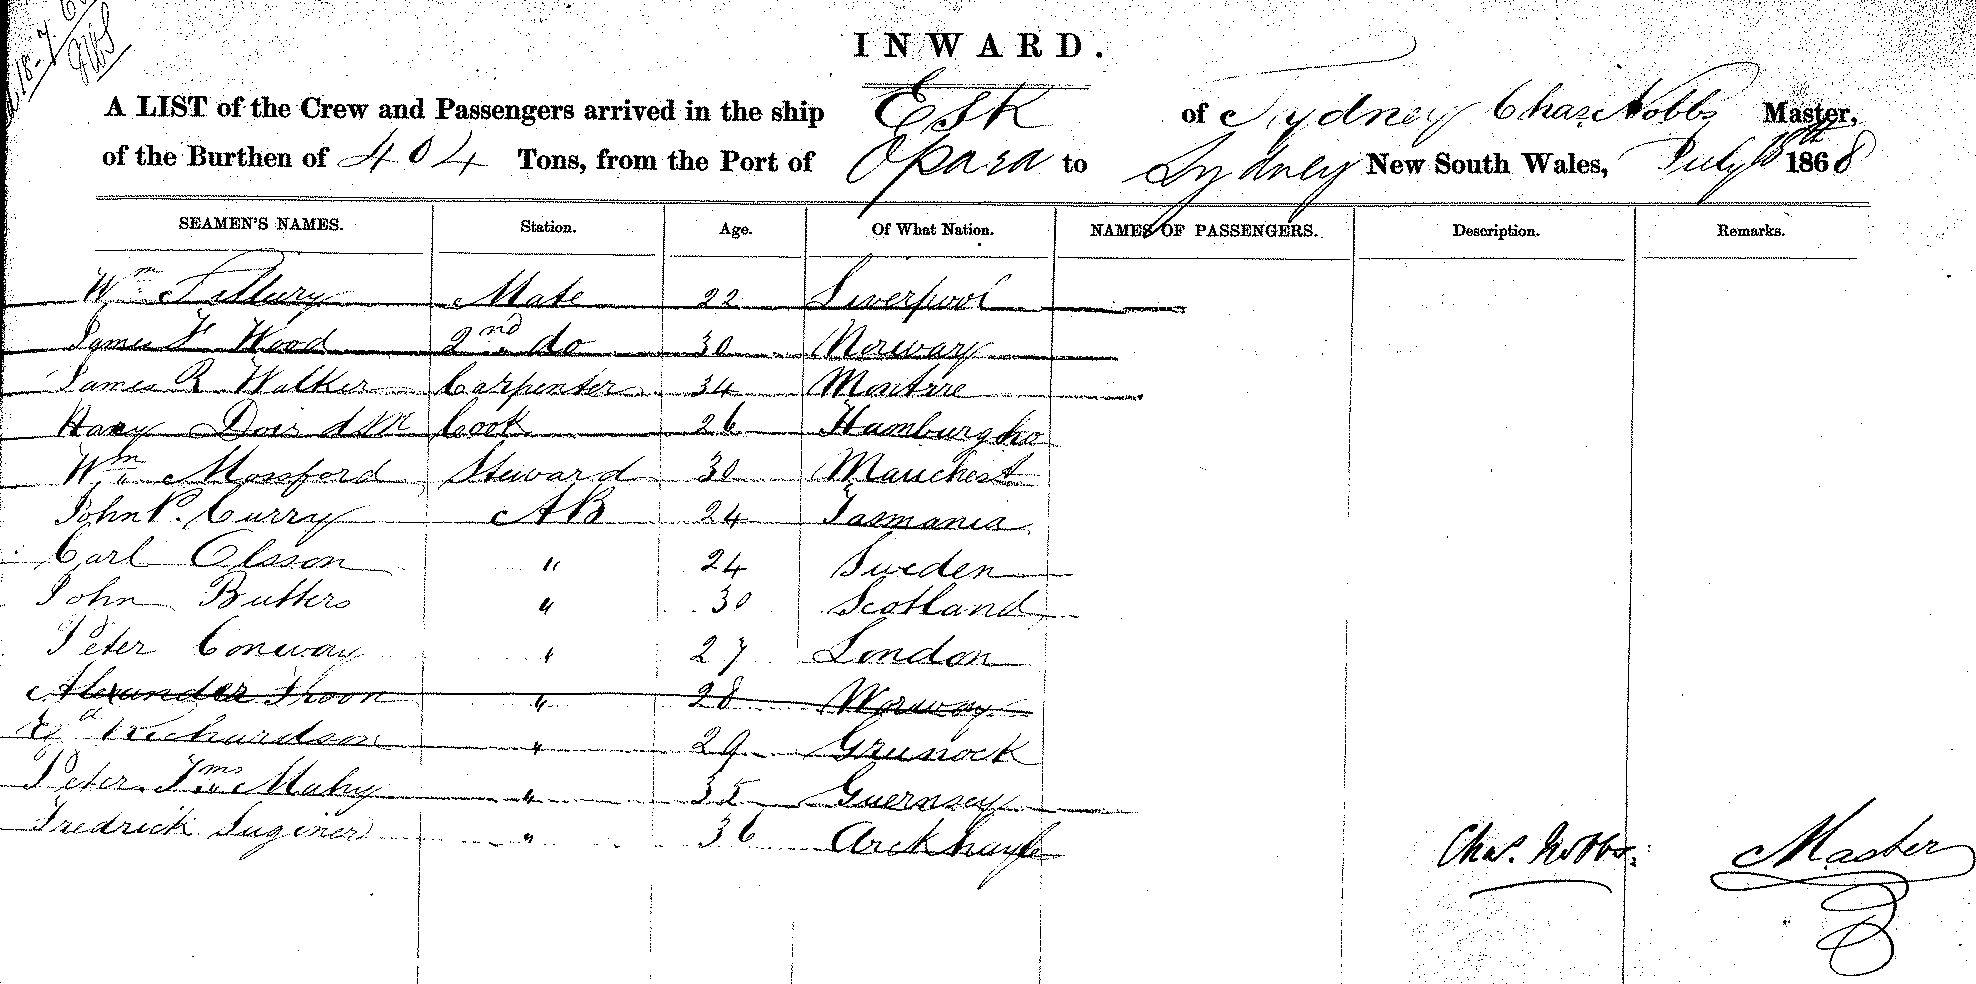 18-7
I N W A R D .
A LIST of the Crew and Passengers arrived in the ship Esk of Sydney Chas. Nobbs Master,
of the Burthen of 404 Tons, from the Port of Opara to Sydney New South Wales, July 1868
SEAMEN'S NAMES. Station. Age. Of What Nation. NAMES OF PASSENGERS. Description. Remarks.
Wm Mate 22 Liverpool
James Wood 2nd do 30 Norway
James R Walker Carpenter 34 Montrose
Cook 26 Hamburgho
Wm Mossford Steward 30 Manchest
John P. Curry AB 24 Tasmania
Carl Olsson " 24 Sweden
John Butters " 30 Scotland
Peter Conway " 27 London
Alexander Thoon " 28 Norway
Richardson " 29 Grunock
Peter Mahy " 35 Guernsey
Fredrick " 36
Chas. Nobbs. Master